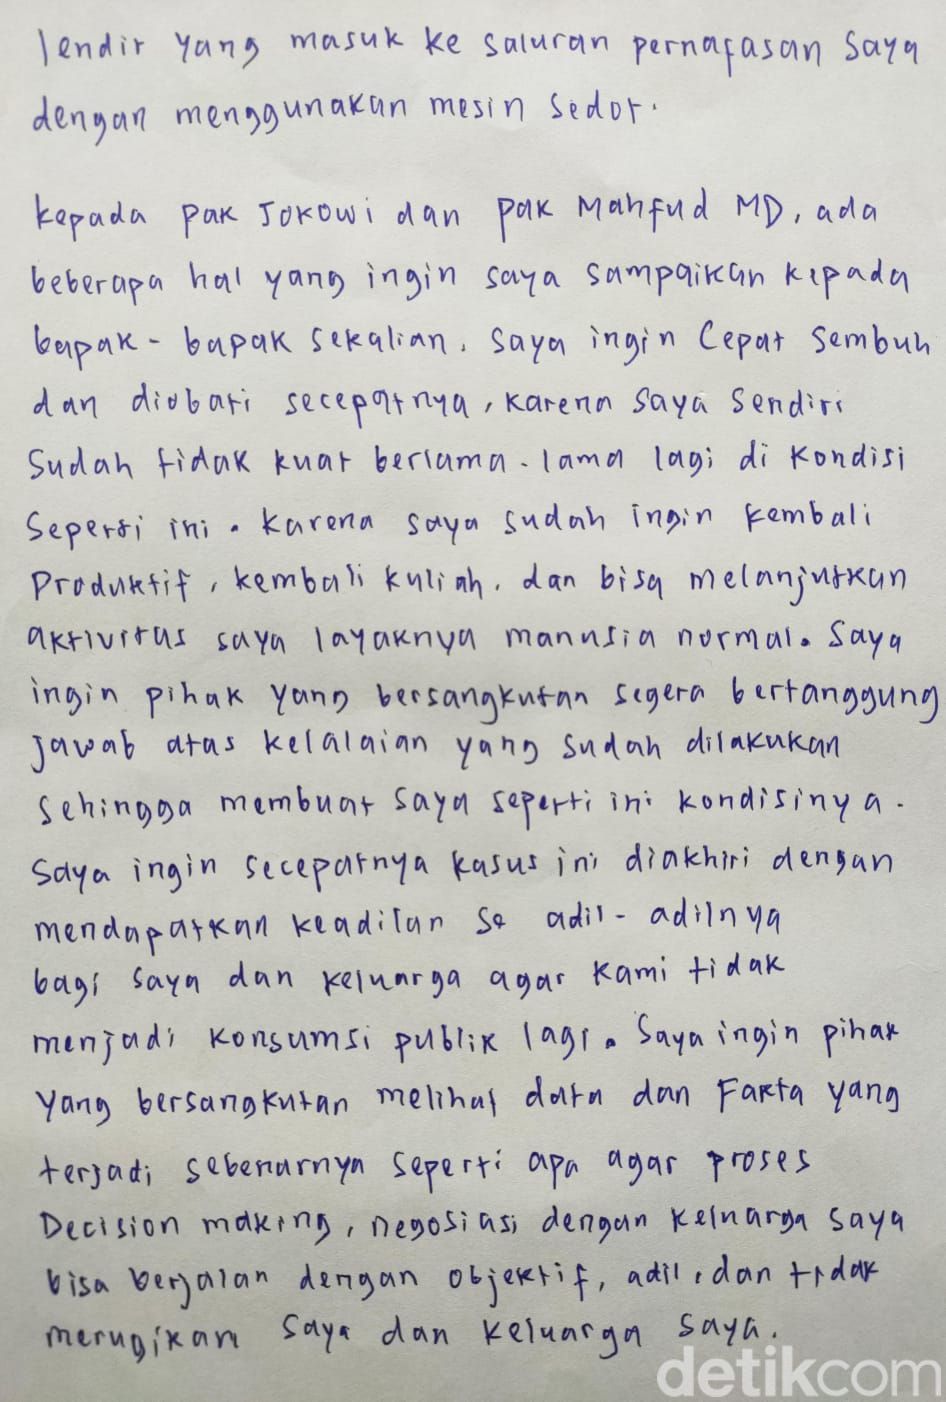 lendir yang masuk ke saluran pernafasan saya
dengan menggunakan mesin sedot.
kepada pak Jokowi dan pak Mahfud MD, ada
beberapa hal yang ingin saya sampaikan kepada
bapak-bapak sekalian, saya ingin Cepat sembuh
dan diobati secepatnya, karena saya sendiri
sudah tidak kuat berlama-lama lagi di kondisi
seperti ini. karena saya sudah ingin kembali
produktif, kembali kuliah, dan bisa melanjutkan
aktivitas saya layaknya manusia normal. Saya
ingin pihak yang bersangkutan segera bertanggung
jawab atas kelalaian yang sudah dilakukan
sehingga membuat saya seperti ini kondisinya.
Saya ingin secepatnya kasus ini diakhiri dengan
mendapatkan keadilan se adil-adilnya
bagi saya dan keluarga agar kami tidak
menjadi konsumsi publik lagi. Saya ingin pihak
yang bersangkutan melihat data dan Fakta yang
terjadi sebenarnya seperti apa agar proses
Decision making, negosiasi dengan keluarga saya
bisa berjalan dengan objektif, adil, dan tidak
merugikan saya dan keluarga saya.
detikcom